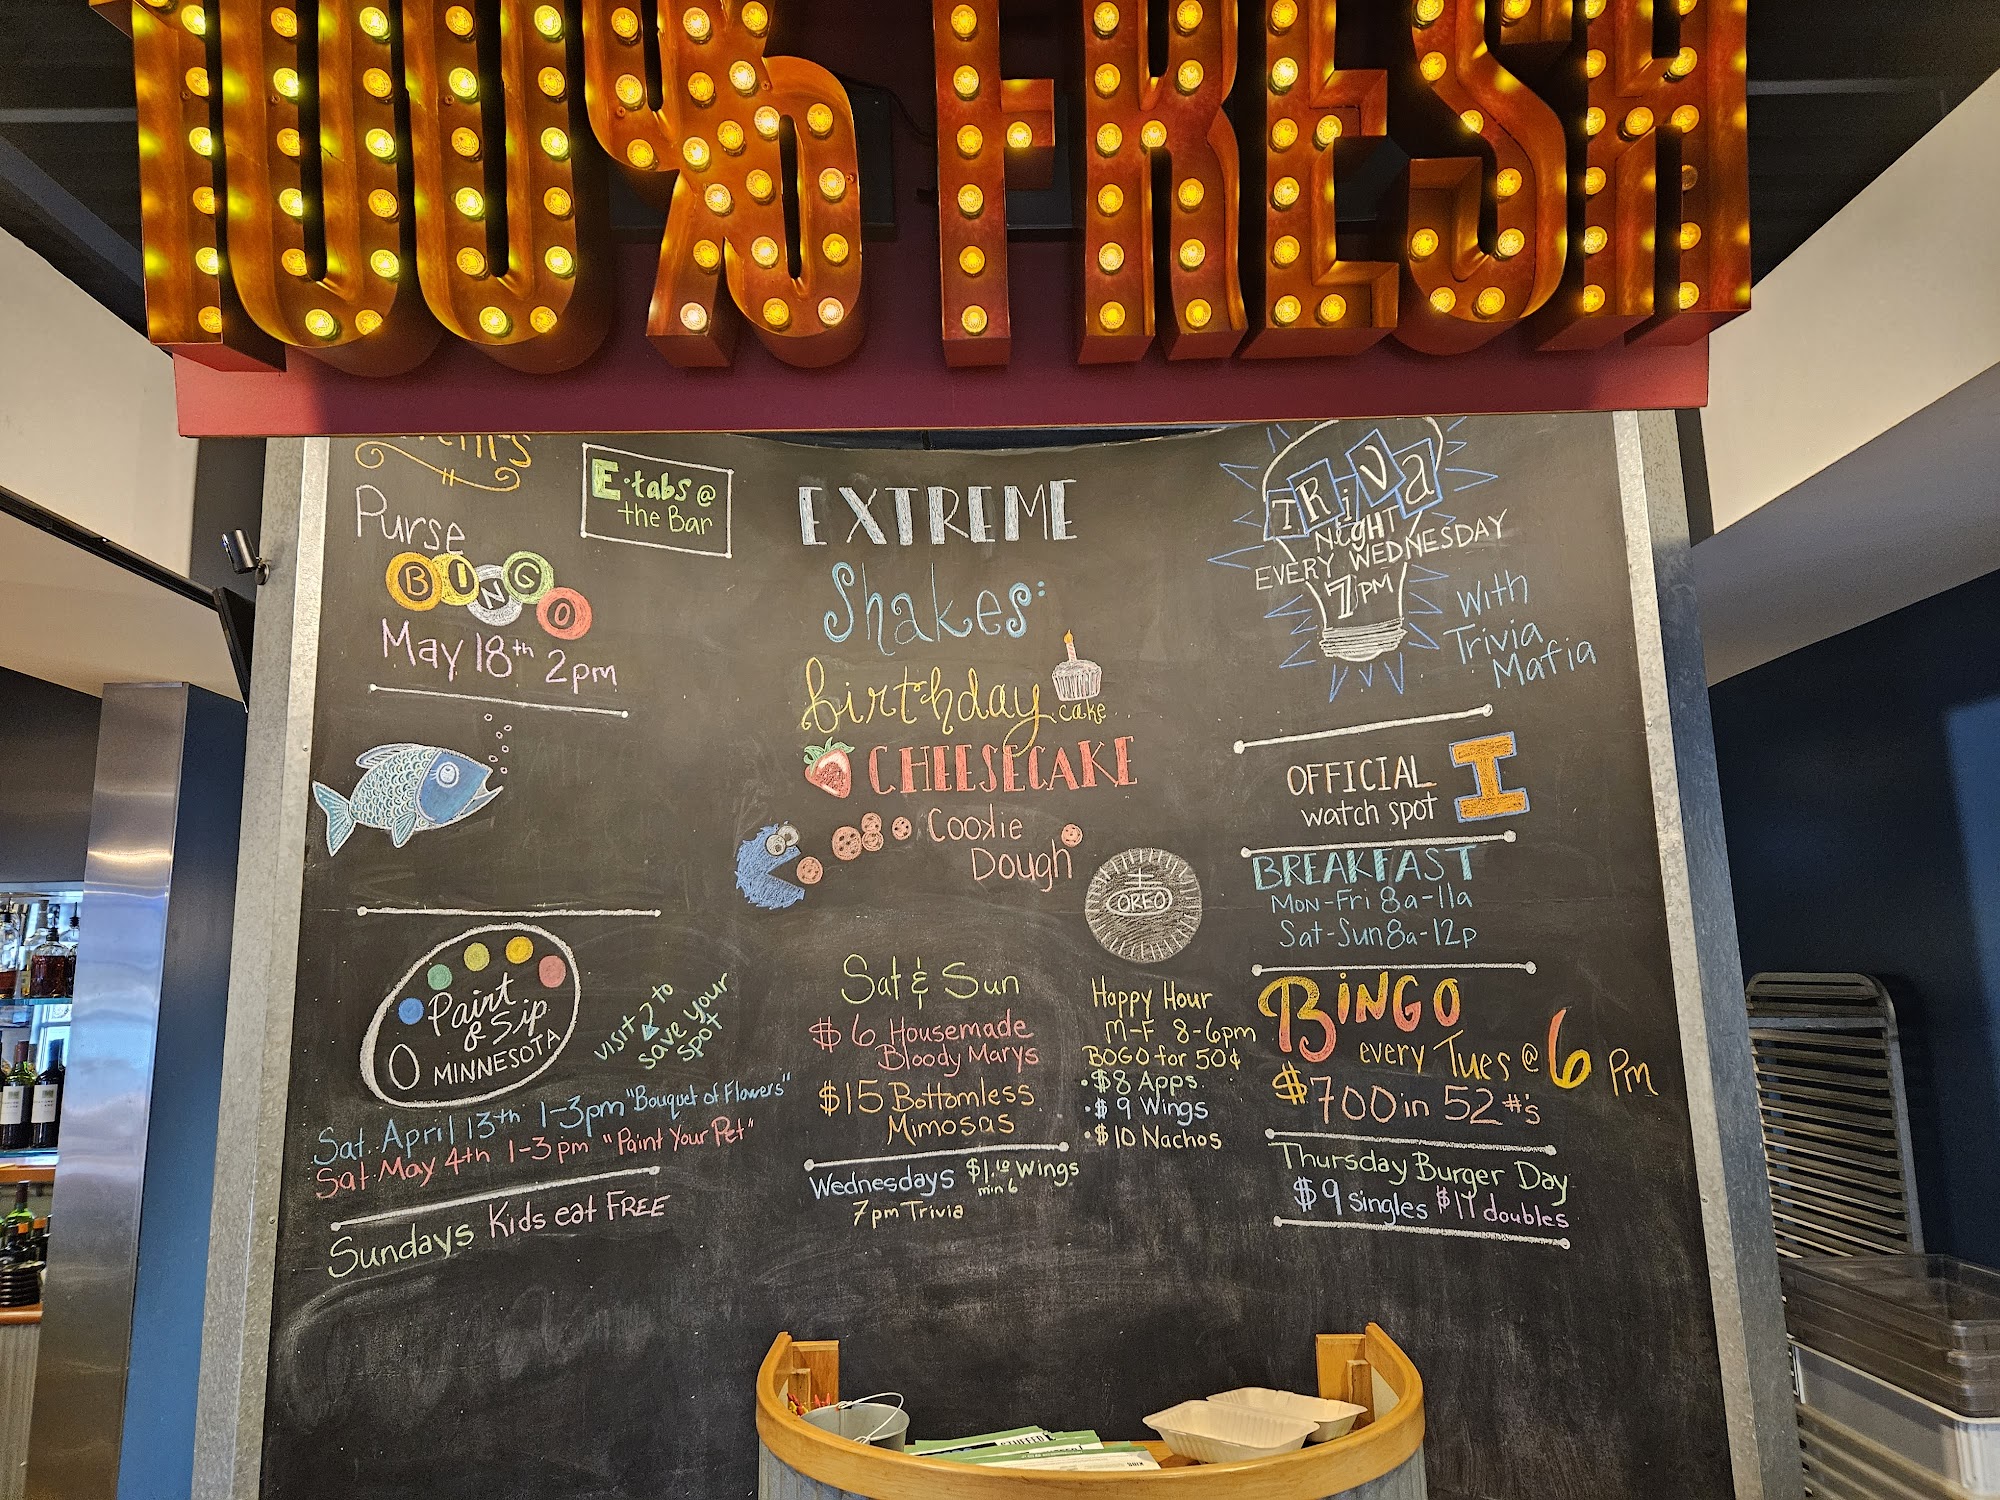 100% FRESH
Purse
BINGO
May 18th 2pm
E-tabs @
the Bar
Paint
& Sip
MINNESOTA
visit to
save your
spot
Sat. April 13th 1-3pm "Bouquet of Flowers"
Sat. May 4th 1-3pm "Paint Your Pet"
Sundays Kids eat FREE
EXTREME
Shakes:
birthday
cake
CHEESECAKE
Cookie
Dough
OREO
Sat & Sun
$6 Housemade
Bloody Marys
$15 Bottomless
Mimosas
Wednesdays $1.10 Wings
min 6
7pm Trivia
Happy Hour
M-F 8-6pm
BOGO for 50¢
• $8 Apps
• $9 Wings
• $10 Nachos
TRiVa
NIGHT
EVERY WEDNESDAY
7PM
With
Trivia
Mafia
OFFICIAL
watch spot
I
BREAKFAST
MON-Fri 8a-11a
Sat-Sun 8a-12p
BINGO
every Tues @ 6 Pm
$700 in 52 #'s
Thursday Burger Day
$9 singles $11 doubles
STUFFED